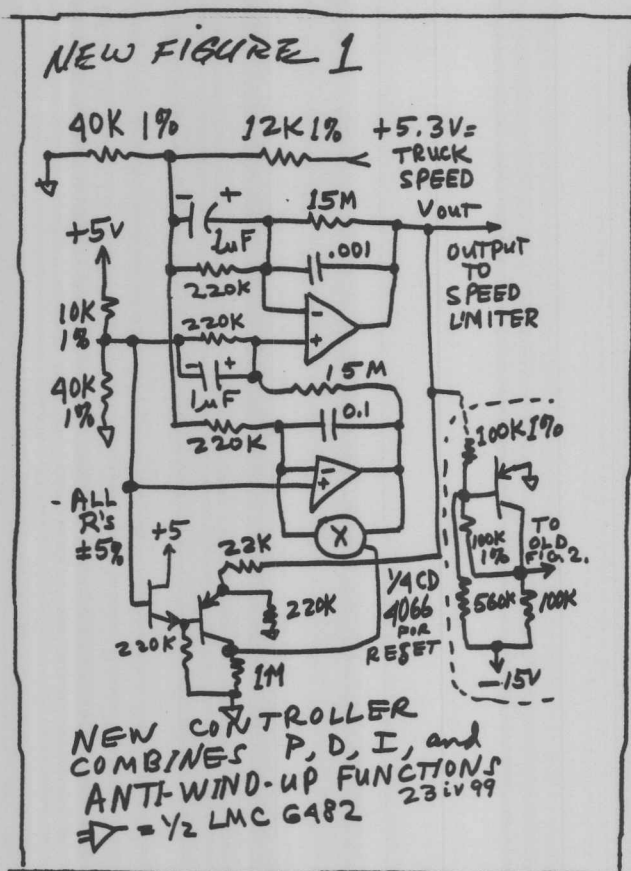 NEW FIGURE 1
40K 1% 12K 1% +5.3V=
TRUCK
SPEED
- + 15M VOUT
1µF
+5V
.001 OUTPUT
TO
SPEED
LIMITER
220K
-
+
10K
1%
220K
- + 15M
1µF
40K
1%
0.1
220K
100K 1%
-
+
- ALL
R's
±5%
X
+5
22K
1/4 CD
4066
FOR
RESET
100K
1%
TO
OLD
FIG 2.
560K 100K
220K
220K
1M
-15V
NEW CONTROLLER
COMBINES P, D, I, and
ANTI-WIND-UP FUNCTIONS
23 iv 99
= 1/2 LMC 6482